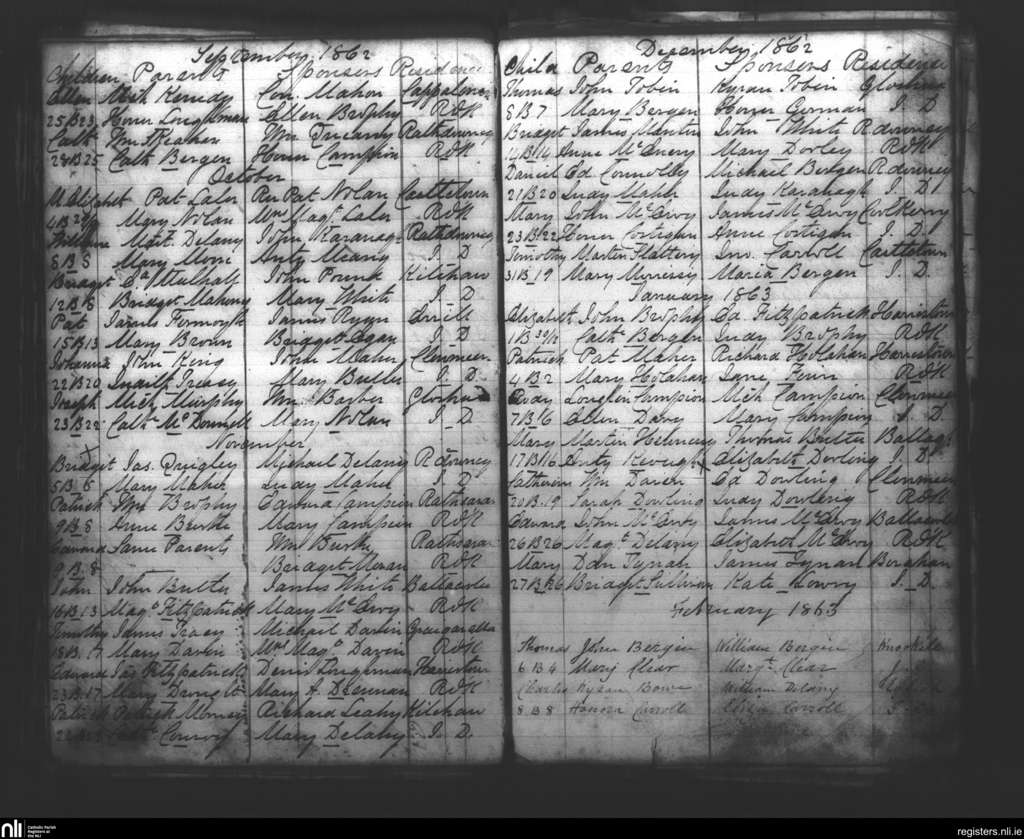 September 1862
Children Parents Sponsers Residence
Ellen Mich Kenedy Con. Mahon Cappalone
25 B 23 Honor Loughman Ellen Brophy RDK
Cath Wm Meaher Wm Delany Rathdowney
28 B 25 Cath Bergen Honor Campion RDK
October
M. Elizabet Pat Lalor Per Pat Nolan Castletown
4 B Mary Nolan Wm Magt Lalor RDK
William Mart Delany John Kavanagh Rathdowney
8 B 8 Mary Moore Anty Meany I D
Bridget Ds Mulhall John Pound Kilchan
12 B Bridget Mahony Mary White I D
Pat James Fermoyle James Ryan Errill
15 B 13 Mary Brown Bridget Egan I D
Johanna John King John Maher Clonmeen
22 B 20 Judith Treasy Mary Butler I D
Joseph Mich Murphy Wm Barber
23 B 22 Cath McDonnell Mary Nolan I D
November
Bridget Jas. Quigley Michael Delany R downey
5 B 5 Mary Maher Judy Maher I D
Patrick Wm Brophy Edward Campion Rathsaran
9 B 8 Anne Burke Mary Campion RDK
Edward Same Parents Wm Burke Rathsaran
9 B 8 Bridget Moran RDK
John John Butler James White Ballacolla
16 B 13 Magt Fitzpatrick Mary McEvoy RDK
Timothy James Tracy Michael Davin
18 B 17 Mary Daven Wm Magt Davin RDK
Edward Jas Fitzpatrick Denis Loughman Harristown
23 B 17 Mary Mary A. Drennan RDK
Patrick Patrick Richard Leahy Kilchan
Conroy Mary Delany I D
December 1862
Child Parents Sponsers Residence
Thomas John Tobin Kyran Tobin
8 B 7 Mary Bergen Honor Gorman I D
Bridget James Mantin John White R downey
14 B 14 Anne McEnery Mary Dorley RDK
Daniel Ed Connolly Michael Bergen R downey
21 B 20 Judy Maher Judy Kavanagh I D
Mary John McEvoy James McEvoy
23 B 22 Honor Costigan Anne Costigan I D
Timothy Martin Flattery Jno. Carroll Castletown
31 B 19 Mary Morrissy Maria Bergen I D
January 1863
Elizabeth John Brophy Ed. Fitzpatrick Harristown
1 B Cath Bergen Judy Brophy RDK
Patrick Pat Maher Richard Holahan Harristown
4 B 2 Mary Holahan Jane RDK
Judy Loughlen Campion Mich Campion Clonmeen
7 B 6 Ellen Davy Mary Campion I D
Mary Martin Thomas Butler
17 B 16 Anty Keough Elizabeth Dowling I D
Catherine Wm Daven Ed Dowling Clonmeen
20 B 19 Sarah Dowling Judy Dowling RDK
Edward John McEvoy James McEvoy Ballacolla
26 B 26 Magt Delany Elizabeth McEvoy RDK
Mary Dan Tynan James Tynan Boraghan
27 B 26 Bridget Sullivan Kate Lowry I D
February 1863
Thomas John Bergin William Bergin
6 B 4 Mary Clear Margt Clear
Charles Kyran Bowe William Delany
8 B 8 Honora Carroll Carroll
nli
Catholic Parish
Registers at
the NLI
registers.nli.ie